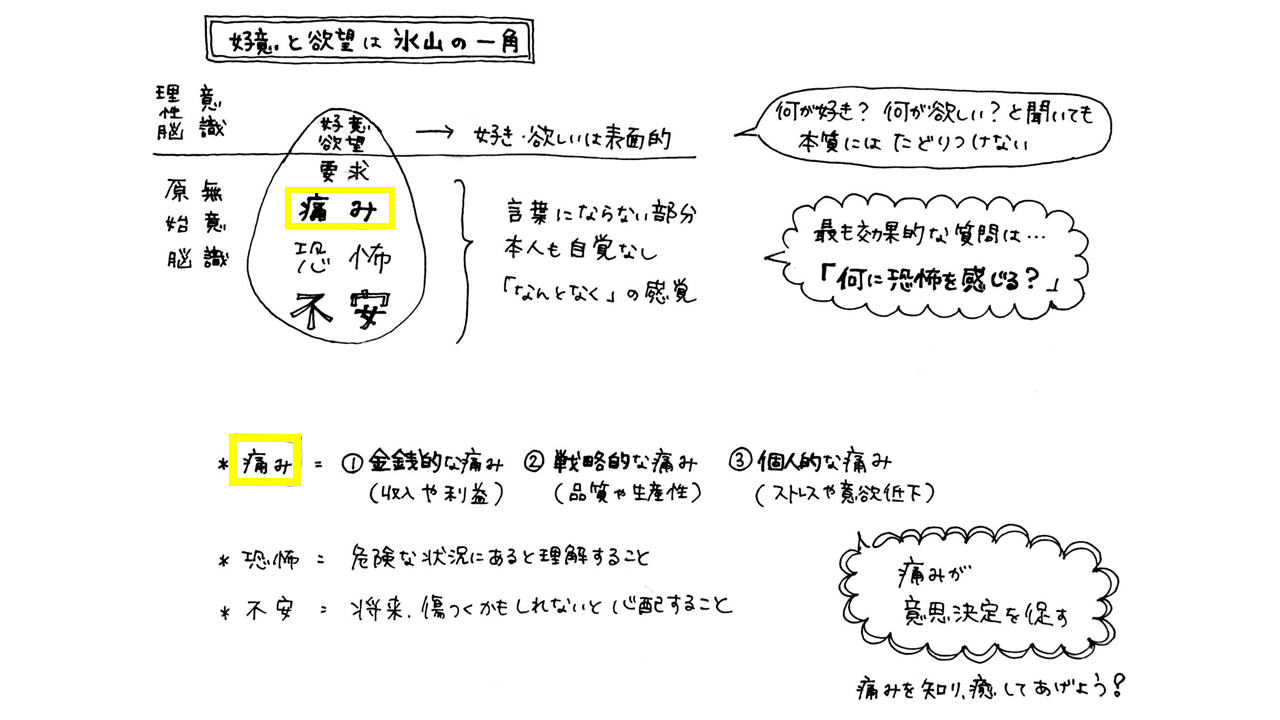 好意と欲望は氷山の一角
理性脳 意識
好意
欲望
→ 好き・欲しいは表面的
何が好き？何が欲しい？と聞いても
本質にはたどりつけない
原始脳 無意識
要求
痛み
恐怖
不安
言葉にならない部分
本人も自覚なし
「なんとなく」の感覚
最も効果的な質問は…
「何に恐怖を感じる？」
* 痛み = ①金銭的な痛み ②戦略的な痛み ③個人的な痛み
(収入や利益) (品質や生産性) (ストレスや意欲低下)
* 恐怖 = 危険な状況にあると理解すること
* 不安 = 将来、傷つくかもしれないと心配すること
痛みが
意思決定を促す
痛みを知り、癒してあげよう！